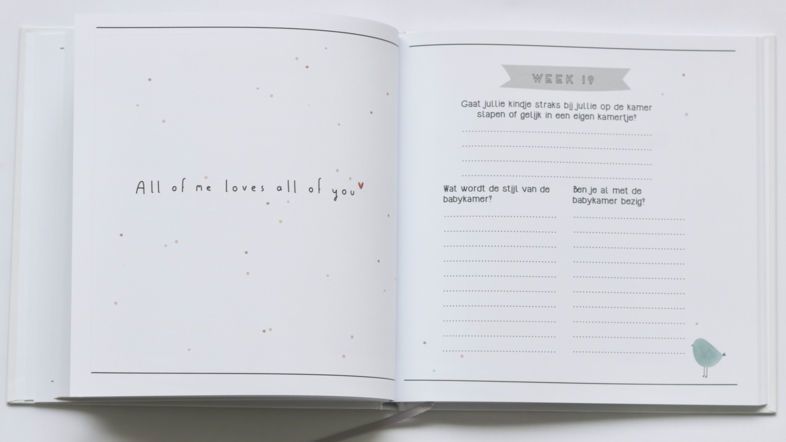 All of me loves all of you
WEEK 19
Gaat jullie kindje straks bij jullie op de kamer
slapen of gelijk in een eigen kamertje?
Wat wordt de stijl van de
babykamer?
Ben je al met de
babykamer bezig?